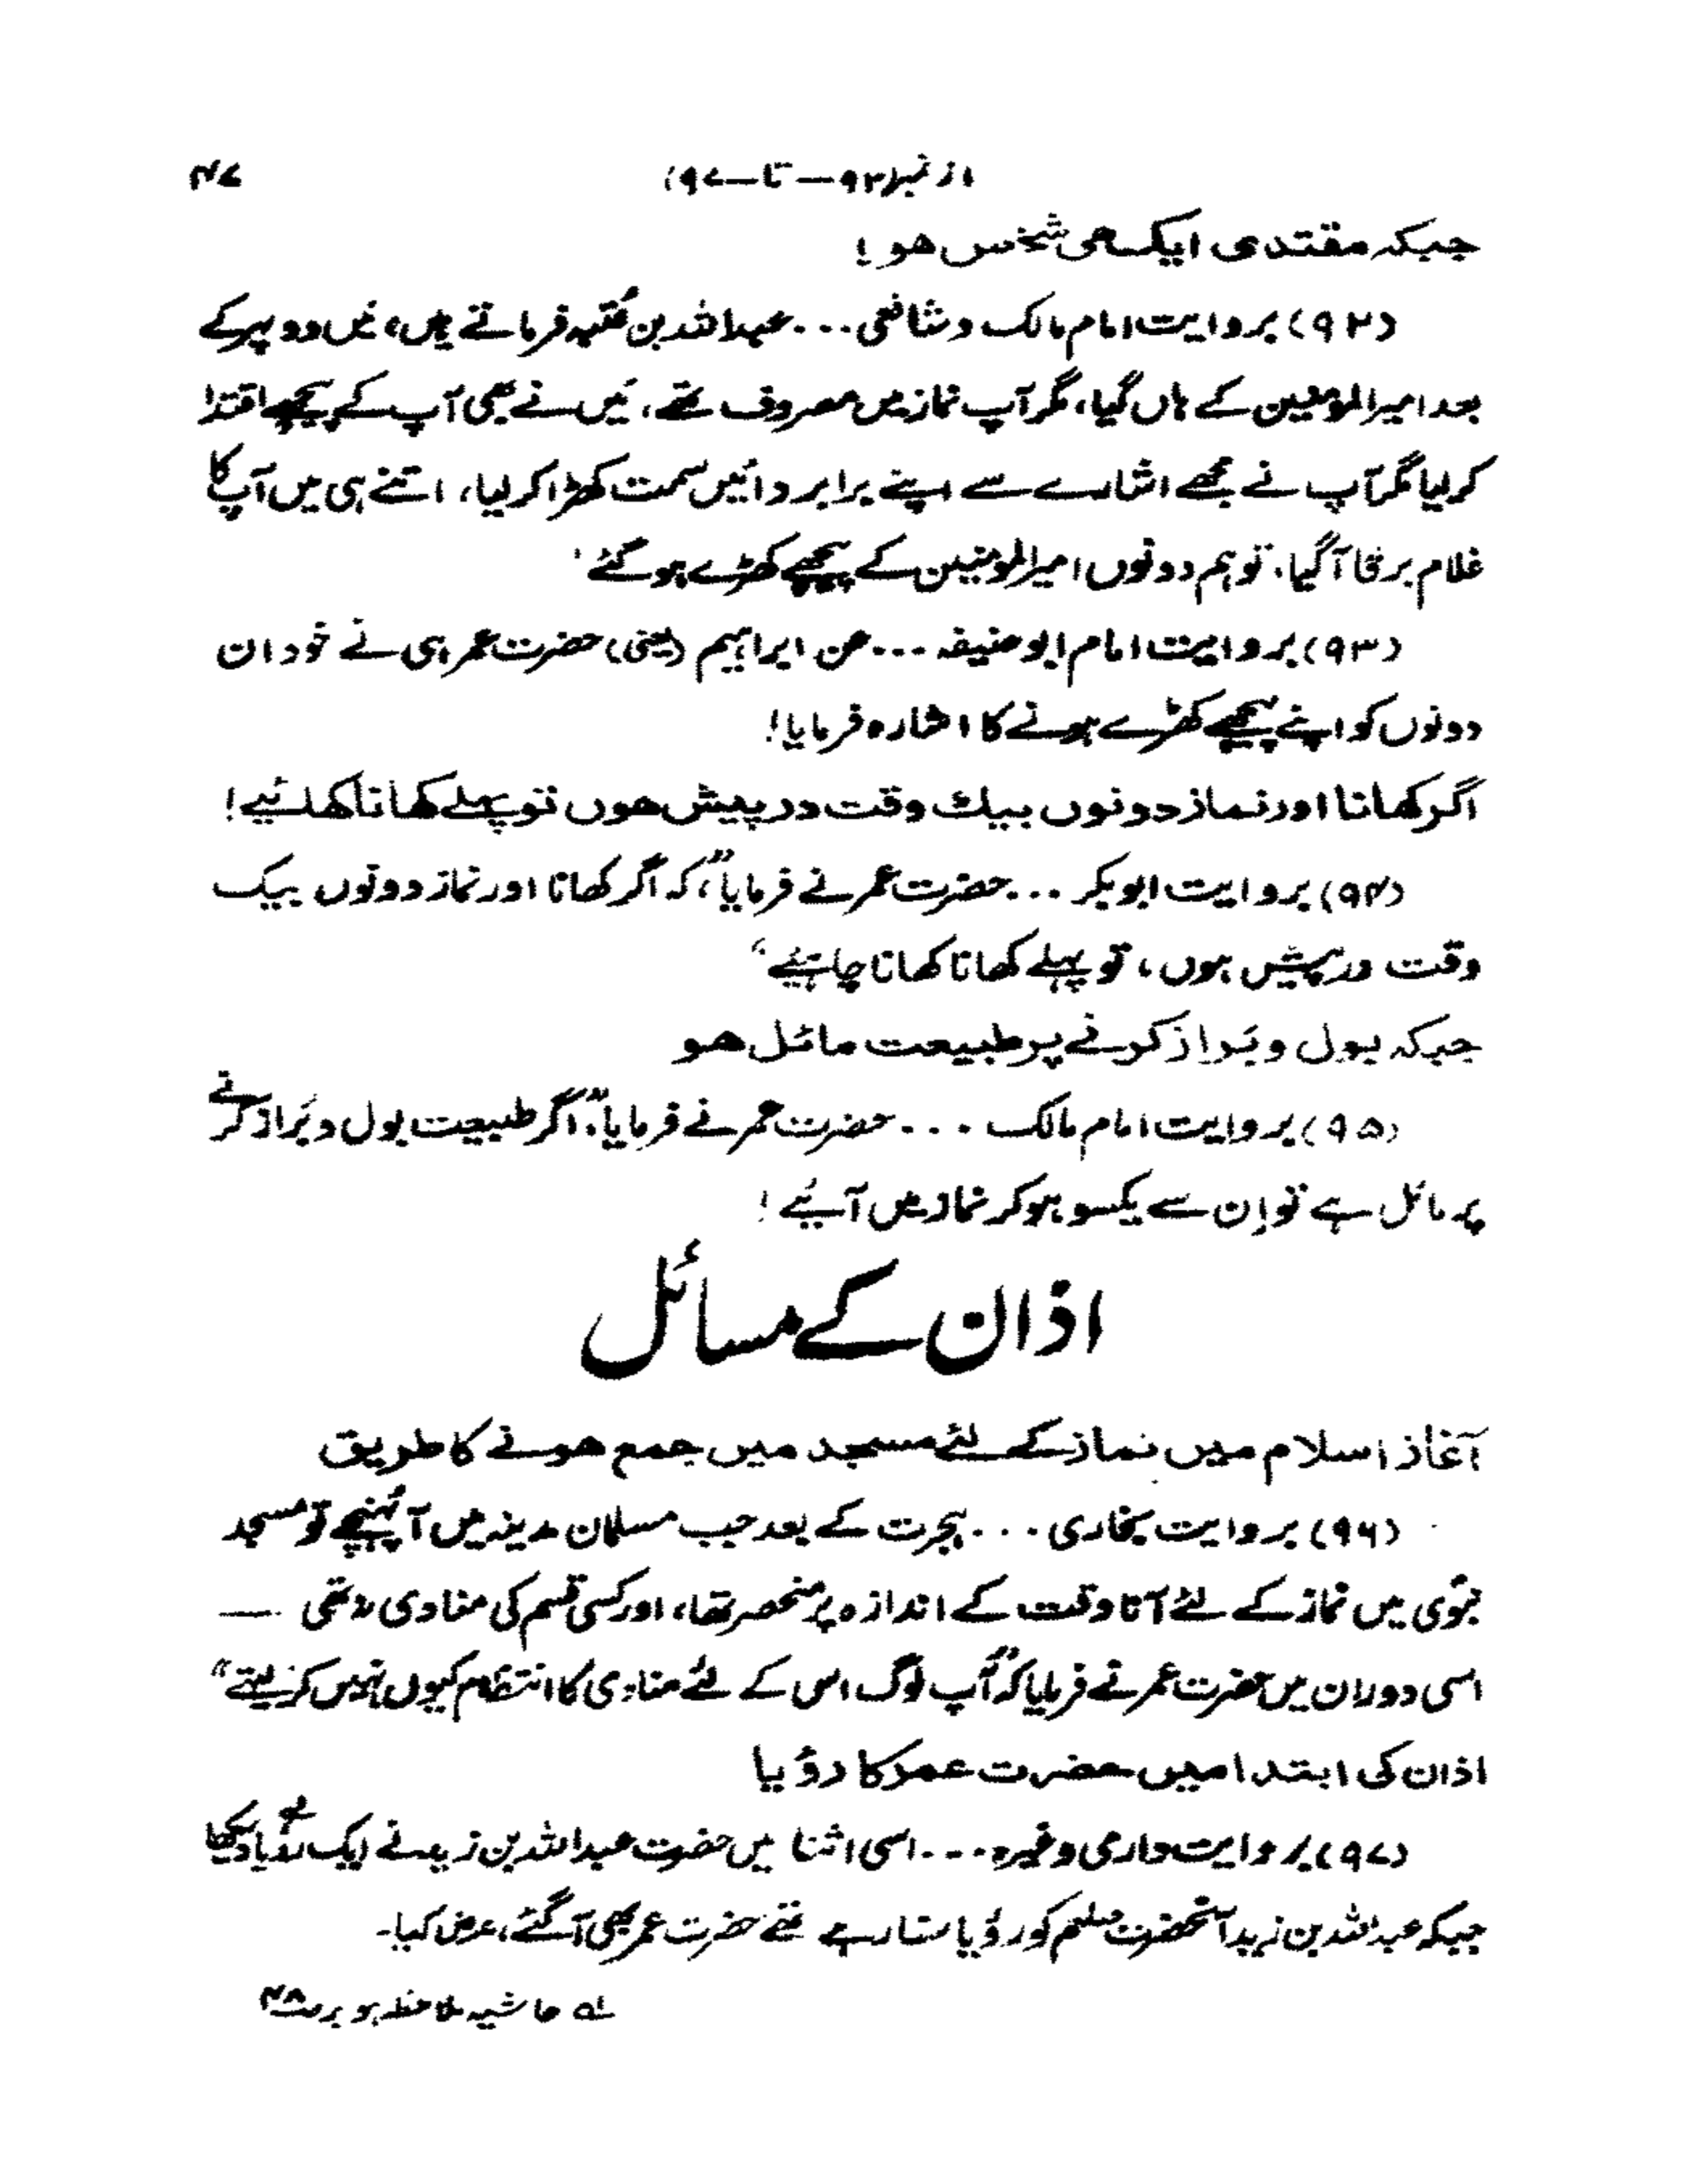 ۴۷
(از نمبر ۹۲ — تا — ۹۷)
جبکہ مقتدی ایک ھی شخص ھو!
(۹۲) بروایت امام مالک و شافعی ... عبداللہ بن عُتبہ فرماتے ہیں، میں دوپہر کے
بعد امیرالمومنین کے ہاں گیا، مگر آپ نماز میں مصروف تھے، میں نے بھی آپ کے پیچھے اقتدا
کر لیا مگر آپ نے مجھے اشارے سے اپنے برابر دائیں سمت کھڑا کر لیا، اتنے ہی میں آپ کا
غلام برقا آگیا، تو ہم دونوں امیرالمومنین کے پیچھے کھڑے ہو گئے،
(۹۳) بروایت امام ابوحنیفہ ... عن ابراہیم (یعنی) حضرت عمر ہی نے خود ان
دونوں کو اپنے پیچھے کھڑے ہونے کا اشارہ فرمایا!
اگر کھانا اور نماز دونوں بیک وقت در پیش ھوں تو پہلے کھانا کھائیے!
(۹۴) بروایت ابوبکر ... حضرت عمر نے فرمایا، "کہ اگر کھانا اور نماز دونوں بیک
وقت درپیش ہوں، تو پہلے کھانا کھانا چاہیئے"
جبکہ بول و بَراز کرنے پر طبیعت مائل ھو
(۹۵) بروایت امام مالک ... حضرت عمر نے فرمایا: "اگر طبیعت بول و بَراز کرنے
پر مائل ہے تو اِن سے یکسو ہو کر نماز میں آئیے!
اذان کے مسائل
آغاز اسلام میں نماز کے لئے مسجد میں جمع ھونے کا طریق
(۹۶) بروایت بخاری ... ہجرت کے بعد جب مسلمان مدینہ میں آ پہنچے تو مسجد
نبوی میں نماز کے لئے آنا وقت کے اندازہ پر منحصر تھا، اور کسی قسم کی منادی نہ تھی —
اسی دوران میں حضرت عمر نے فرمایا کہ "آپ لوگ اس کے لئے منادی کا انتظام کیوں نہیں کر لیتے"
اذان کی ابتدا میں حضرت عمر کا رؤیا
(۹۷) بروایت دارمی وغیرہ ... اسی اثنا میں حضرت عبداللہ بن زید نے ایک رؤیا دیکھا
جبکہ عبداللہ بن زید آنحضرت صلعم کو رؤیا سنا رہے تھے حضرت عمر بھی آ گئے، عرض کیا۔
لہ حاشیہ ملاحظہ ہو بر ص۴۸